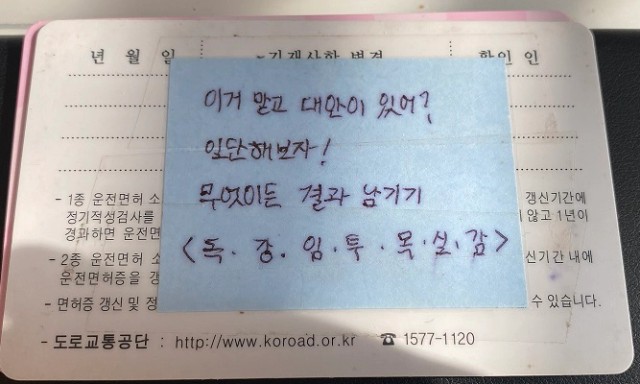 년 월 일 기재사항 변경 확인 인
이거 말고 대안이 있어?
일단해보자!
무엇이든 결과 남기기
<독·강·임·투·목·실·감>
- 1종 운전면허 소 갱신기간에
정기적성검사를 않고 1년이
경과하면 운전면
- 2종 운전면허 소 신기간 내에
운전면허증을 갱
- 면허증 갱신 및 정 수 있습니다.
- 도로교통공단 : http://www.koroad.or.kr ☎ 1577-1120